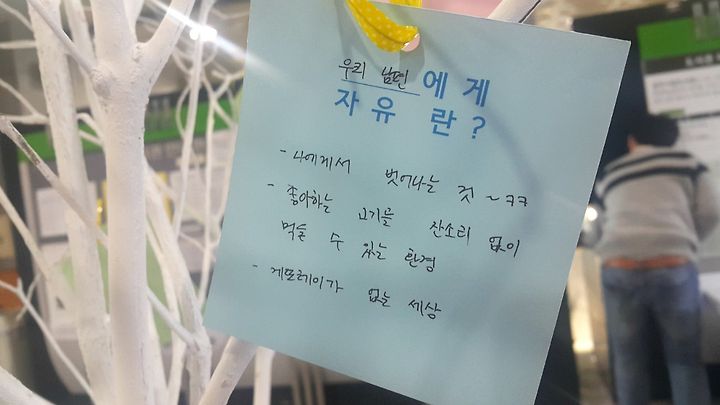 우리 남편 에게
자유란?
- 나에게서 벗어나는 것 ~ ㅋㅋ
- 좋아하는 고기를 잔소리 없이
먹을 수 있는 환경
- 게또레이가 없는 세상